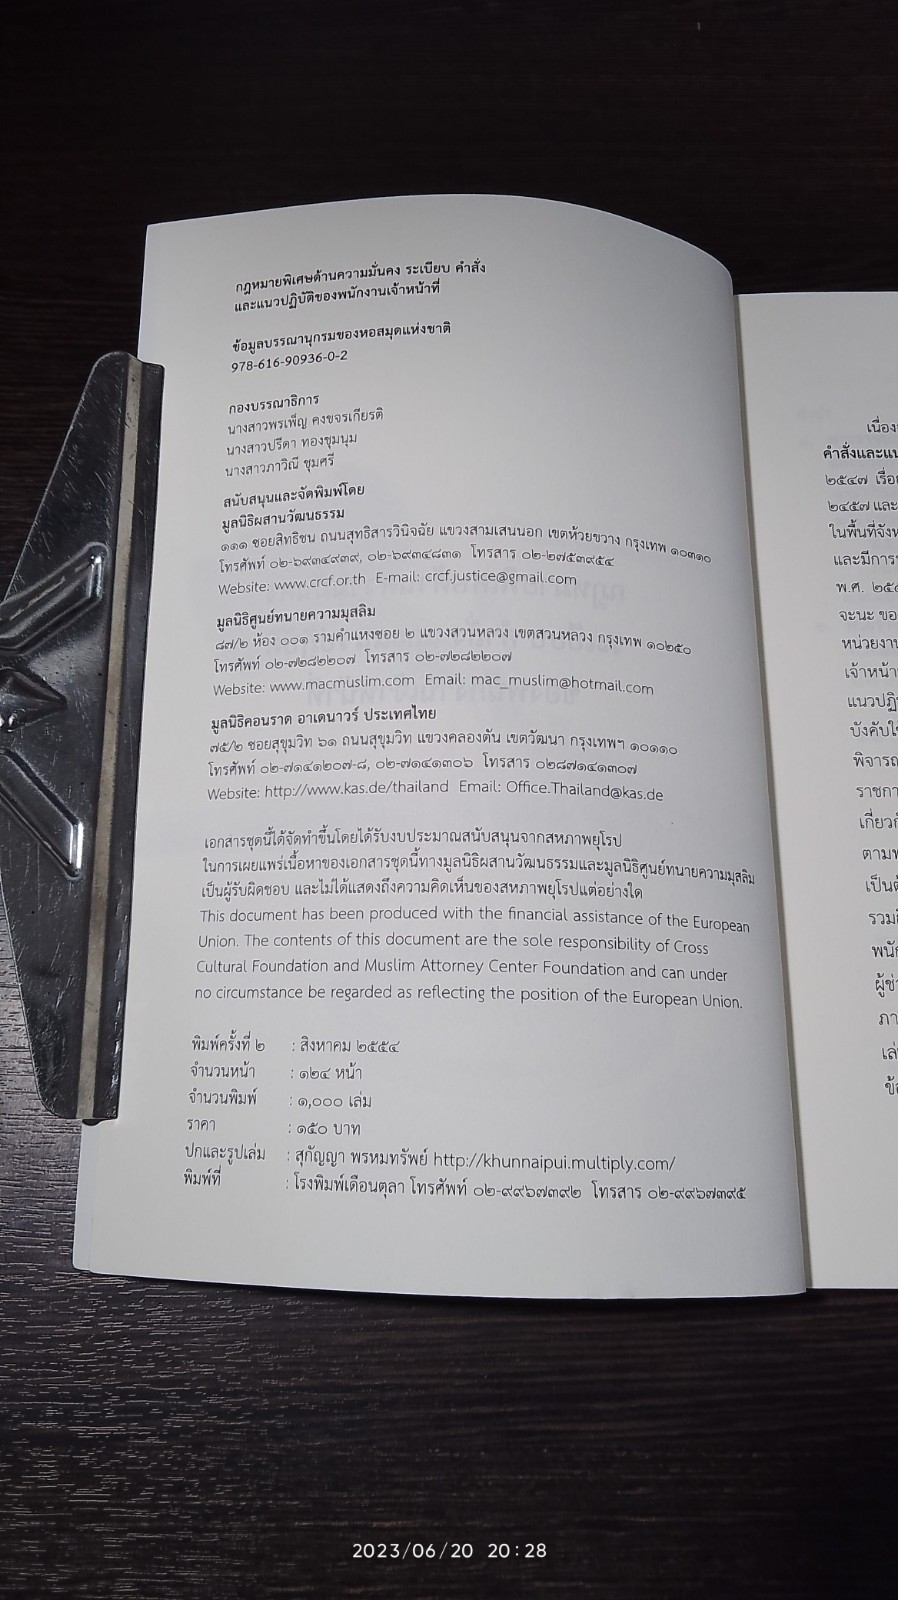 กฎหมายพิเศษด้านความมั่นคง ระเบียบ คำสั่ง
และแนวปฏิบัติของพนักงานเจ้าหน้าที่
ข้อมูลบรรณานุกรมของหอสมุดแห่งชาติ
978-616-90936-0-2
กองบรรณาธิการ
นางสาวพรเพ็ญ คงขจรเกียรติ
นางสาวปรีดา ทองชุมนุม
นางสาวภาวิณี ชุมศรี
สนับสนุนและจัดพิมพ์โดย
มูลนิธิผสานวัฒนธรรม
๑๑๑ ซอยสิทธิชน ถนนสุทธิสารวินิจฉัย แขวงสามเสนนอก เขตห้วยขวาง กรุงเทพ ๑๐๓๑๐
โทรศัพท์ ๐๒-๖๙๓๔๙๓๙, ๐๒-๖๙๓๔๘๓๑ โทรสาร ๐๒-๒๗๕๓๙๕๔
Website: www.crcf.or.th E-mail: crcf.justice@gmail.com
มูลนิธิศูนย์ทนายความมุสลิม
๘๗/๒ ห้อง ๐๐๑ รามคำแหงซอย ๒ แขวงสวนหลวง เขตสวนหลวง กรุงเทพ ๑๐๒๕๐
โทรศัพท์ ๐๒-๗๒๘๒๒๐๗ โทรสาร ๐๒-๗๒๘๒๒๐๗
Website: www.macmuslim.com Email: mac_muslim@hotmail.com
มูลนิธิคอนราด อาเดนาวร์ ประเทศไทย
๗๕/๒ ซอยสุขุมวิท ๖๑ ถนนสุขุมวิท แขวงคลองตัน เขตวัฒนา กรุงเทพฯ ๑๐๑๑๐
โทรศัพท์ ๐๒-๗๑๔๑๒๐๗-๘, ๐๒-๗๑๔๑๓๐๖ โทรสาร ๐๒๘๗๑๔๑๓๐๗
Website: http://www.kas.de/thailand Email: Office.Thailand@kas.de
เอกสารชุดนี้ได้จัดทำขึ้นโดยได้รับงบประมาณสนับสนุนจากสหภาพยุโรป
ในการเผยแพร่เนื้อหาของเอกสารชุดนี้ทางมูลนิธิผสานวัฒนธรรมและมูลนิธิศูนย์ทนายความมุสลิม
เป็นผู้รับผิดชอบ และไม่ได้แสดงถึงความคิดเห็นของสหภาพยุโรปแต่อย่างใด
This document has been produced with the financial assistance of the European
Union. The contents of this document are the sole responsibility of Cross
Cultural Foundation and Muslim Attorney Center Foundation and can under
no circumstance be regarded as reflecting the position of the European Union.
พิมพ์ครั้งที่ ๒ : สิงหาคม ๒๕๕๔
จำนวนหน้า : ๑๒๔ หน้า
จำนวนพิมพ์ : ๑,๐๐๐ เล่ม
ราคา : ๑๕๐ บาท
ปกและรูปเล่ม : สุกัญญา พรหมทรัพย์ http://khunnaipui.multiply.com/
พิมพ์ที่ : โรงพิมพ์เดือนตุลา โทรศัพท์ ๐๒-๙๙๖๗๓๙๒ โทรสาร ๐๒-๙๙๖๗๓๙๕
คำสั่งและแน
๒๕๔๗ เรื่อ
๒๔๕๗ และ
ในพื้นที่จังห
และมีการ
พ.ศ. ๒๕๔
จะนะ ขอ
หน่วยงา
เจ้าหน้า
แนวปฏิ
บังคับใ
พิจารณ
ราชกา
เกี่ยวก
ตามพ
เป็นต้
รวมถึ
พนัก
ผู้ช่
ภา
เล่
ข้อ
2023/06/20 20:28